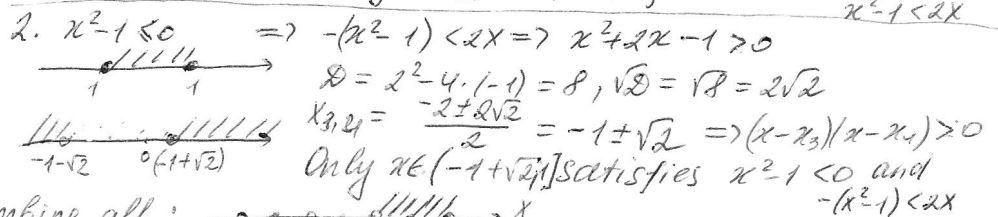 x²-1<2x
2. x²-1≤0 => -(x²-1)<2x => x²+2x-1>0
1 1
D = 2²-4·(-1) = 8, √D = √8 = 2√2
x₃,₄ = (-2±2√2)/2 = -1±√2 => (x-x₃)(x-x₄)>0
-1-√2 0 (-1+√2)
Only x∈(-1+√2;1] satisfies x²-1<0 and
-(x²-1)<2x
all: x